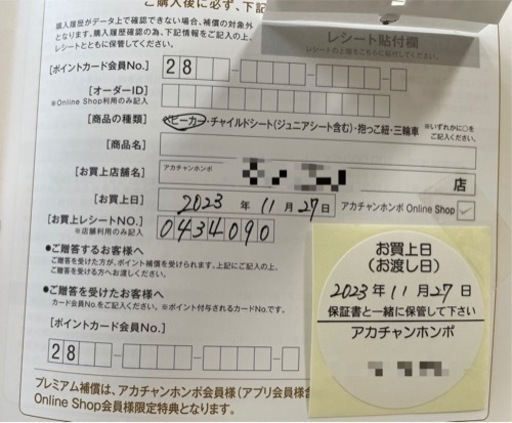 ご購入後に必ず、下記
購入履歴がデータ上で確認できない場合、補償の対象外
となります。購入履歴確認の為、下記情報をご記入の上、
レシートとともに保管してください。
レシート貼付欄
レシートの上端をこちらに貼付してください。
[ポイントカード会員No.] 28
[オーダーID]
※Online Shop利用のみ記入
[商品の種類] ベビーカー・チャイルドシート(ジュニアシート含む)・抱っこ紐・三輪車 ※いずれかに○をご記入ください。
[商品名]
[お買上店舗名] アカチャンホンポ 店
[お買上日] 2023 年 11 月 27 日 アカチャンホンポ Online Shop
[お買上レシートNO.] 0434090
※店舗利用のみ記入
●ご贈答するお客様へ
ご贈答を受けた方が、ポイント補償を受けられます。上記にご記入の上、
ご贈答を受ける方へお渡しください。
●ご贈答を受けたお客様へ
カード会員Noをご記入ください。※ポイント付与されるカードNo.です。
[ポイントカード会員No.]
28
プレミアム補償は、アカチャンホンポ会員様(アプリ会員様含
Online Shop会員様限定特典となります。
お買上日
(お渡し日)
2023 年 11 月 27 日
保証書と一緒に保管して下さい
アカチャンホンポ